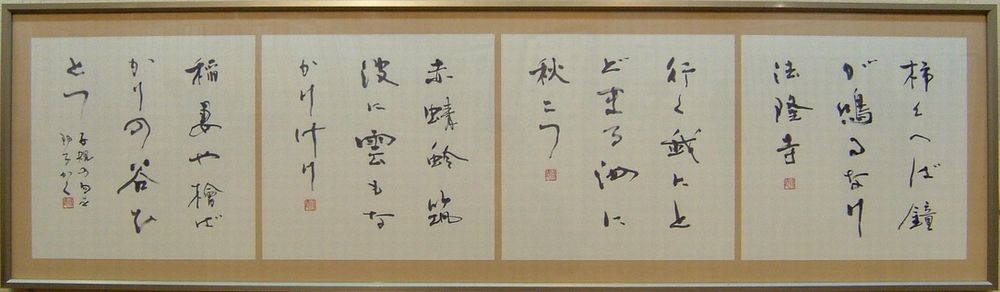 柿くへば鐘
が鳴るなり
法隆寺
行く我にと
どまる汝に
秋二つ
赤蜻蛉筑
波に雲もな
かりけり
稲妻や檜ば
かりの谷ひ
とつ
子規の句
かく